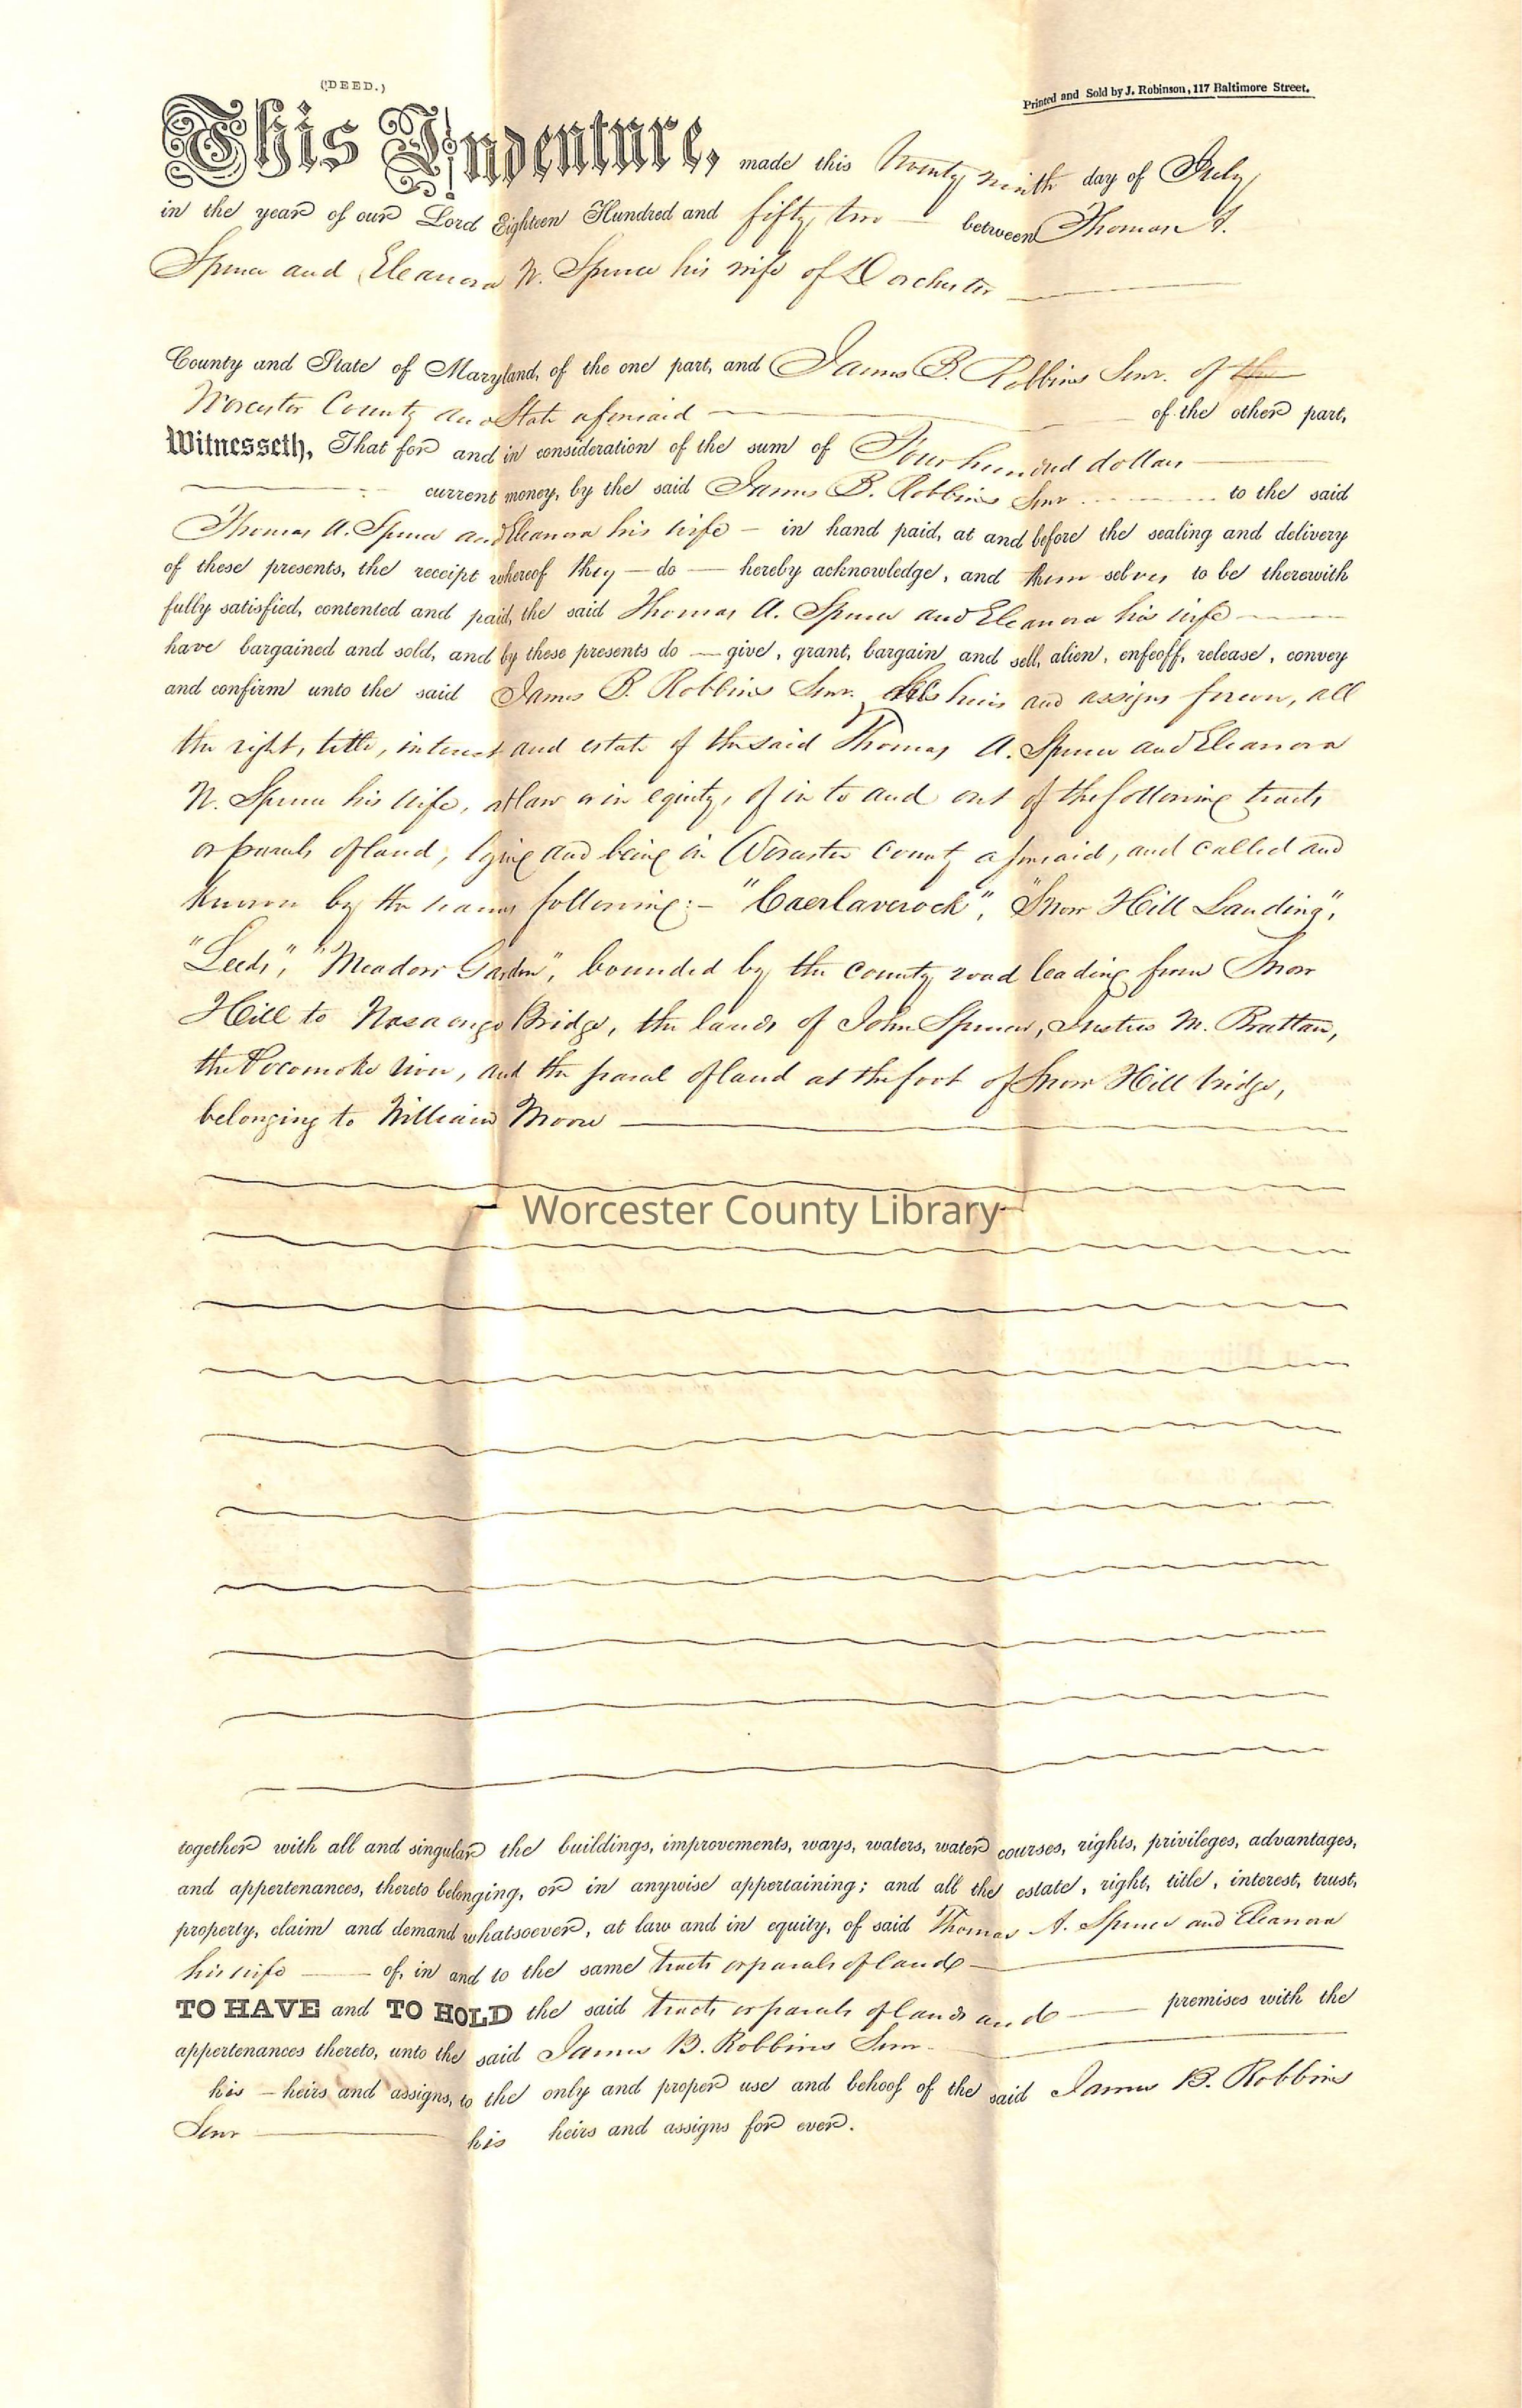 (DEED.)
Printed and Sold by J. Robinson, 117 Baltimore Street.
This Indenture, made this Twenty ninth day of July
in the year of our Lord Eighteen Hundred and fifty two between Thomas A.
Spence and Eleanora W. Spence his wife of Dorchester
County and State of Maryland, of the one part, and James B. Robbins Senr. of the
Worcester County and State aforesaid of the other part,
Witnesseth, That for and in consideration of the sum of Four hundred dollars
current money, by the said James B. Robbins Senr to the said
Thomas A. Spence and Eleanora his wife – in hand paid, at and before the sealing and delivery
of these presents, the receipt whereof they – do – hereby acknowledge, and them selves to be therewith
fully satisfied, contented and paid, the said Thomas A. Spence and Eleanora his wife
have bargained and sold, and by these presents do – give, grant, bargain and sell, alien, enfeoff, release, convey
and confirm unto the said James B. Robbins Senr. his heirs and assigns forever, all
the right, title, interest and estate of the said Thomas A. Spence and Eleanora
W. Spence his wife, at law or in equity, of in to and out of the following tracts
or parcels of land, lying and being in Worcester County aforesaid, and called and
known by the names following:– "Caerlaverock", "Snow Hill Landing",
"Leeds", "Meadow Garden", bounded by the county road leading from Snow
Hill to Nasaongo Bridge, the lands of John Spence, Justus M. Brattan,
the Pocomoke river, and the parcel of land at the foot of Snow Hill bridge,
belonging to William Moore
Worcester County Library
together with all and singular the buildings, improvements, ways, waters, water courses, rights, privileges, advantages,
and appertenances, thereto belonging, or in anywise appertaining; and all the estate, right, title, interest, trust,
property, claim and demand whatsoever, at law and in equity, of said Thomas A. Spence and Eleanora
his wife of, in and to the same tracts or parcels of land
TO HAVE and TO HOLD the said tracts or parcels of lands and premises with the
appertenances thereto, unto the said James B. Robbins Senr.
his – heirs and assigns, to the only and proper use and behoof of the said James B. Robbins
Senr his heirs and assigns for ever.